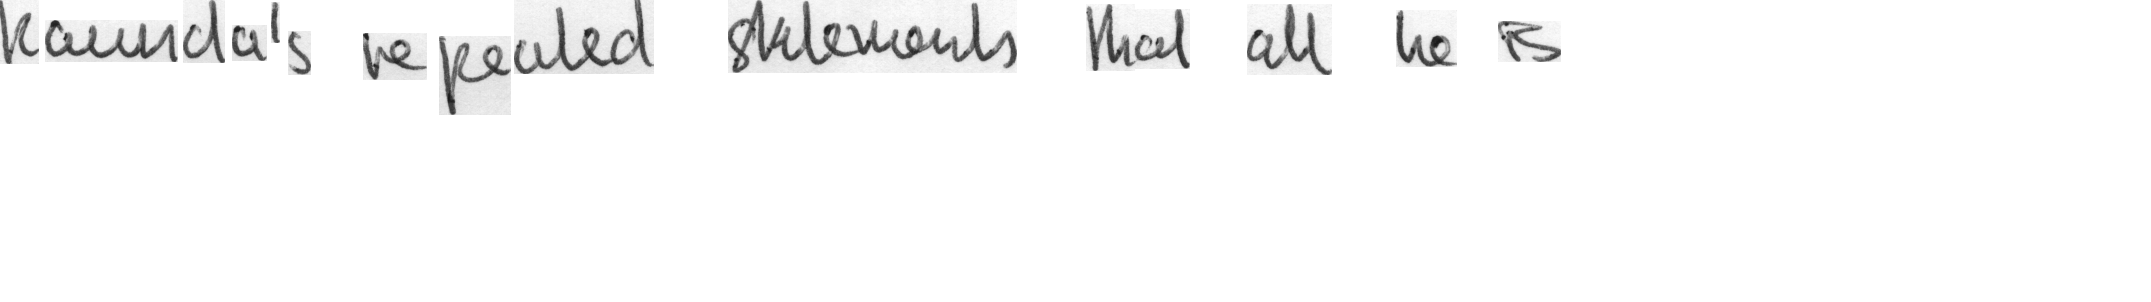 Kaunda's repeated statements that all he is